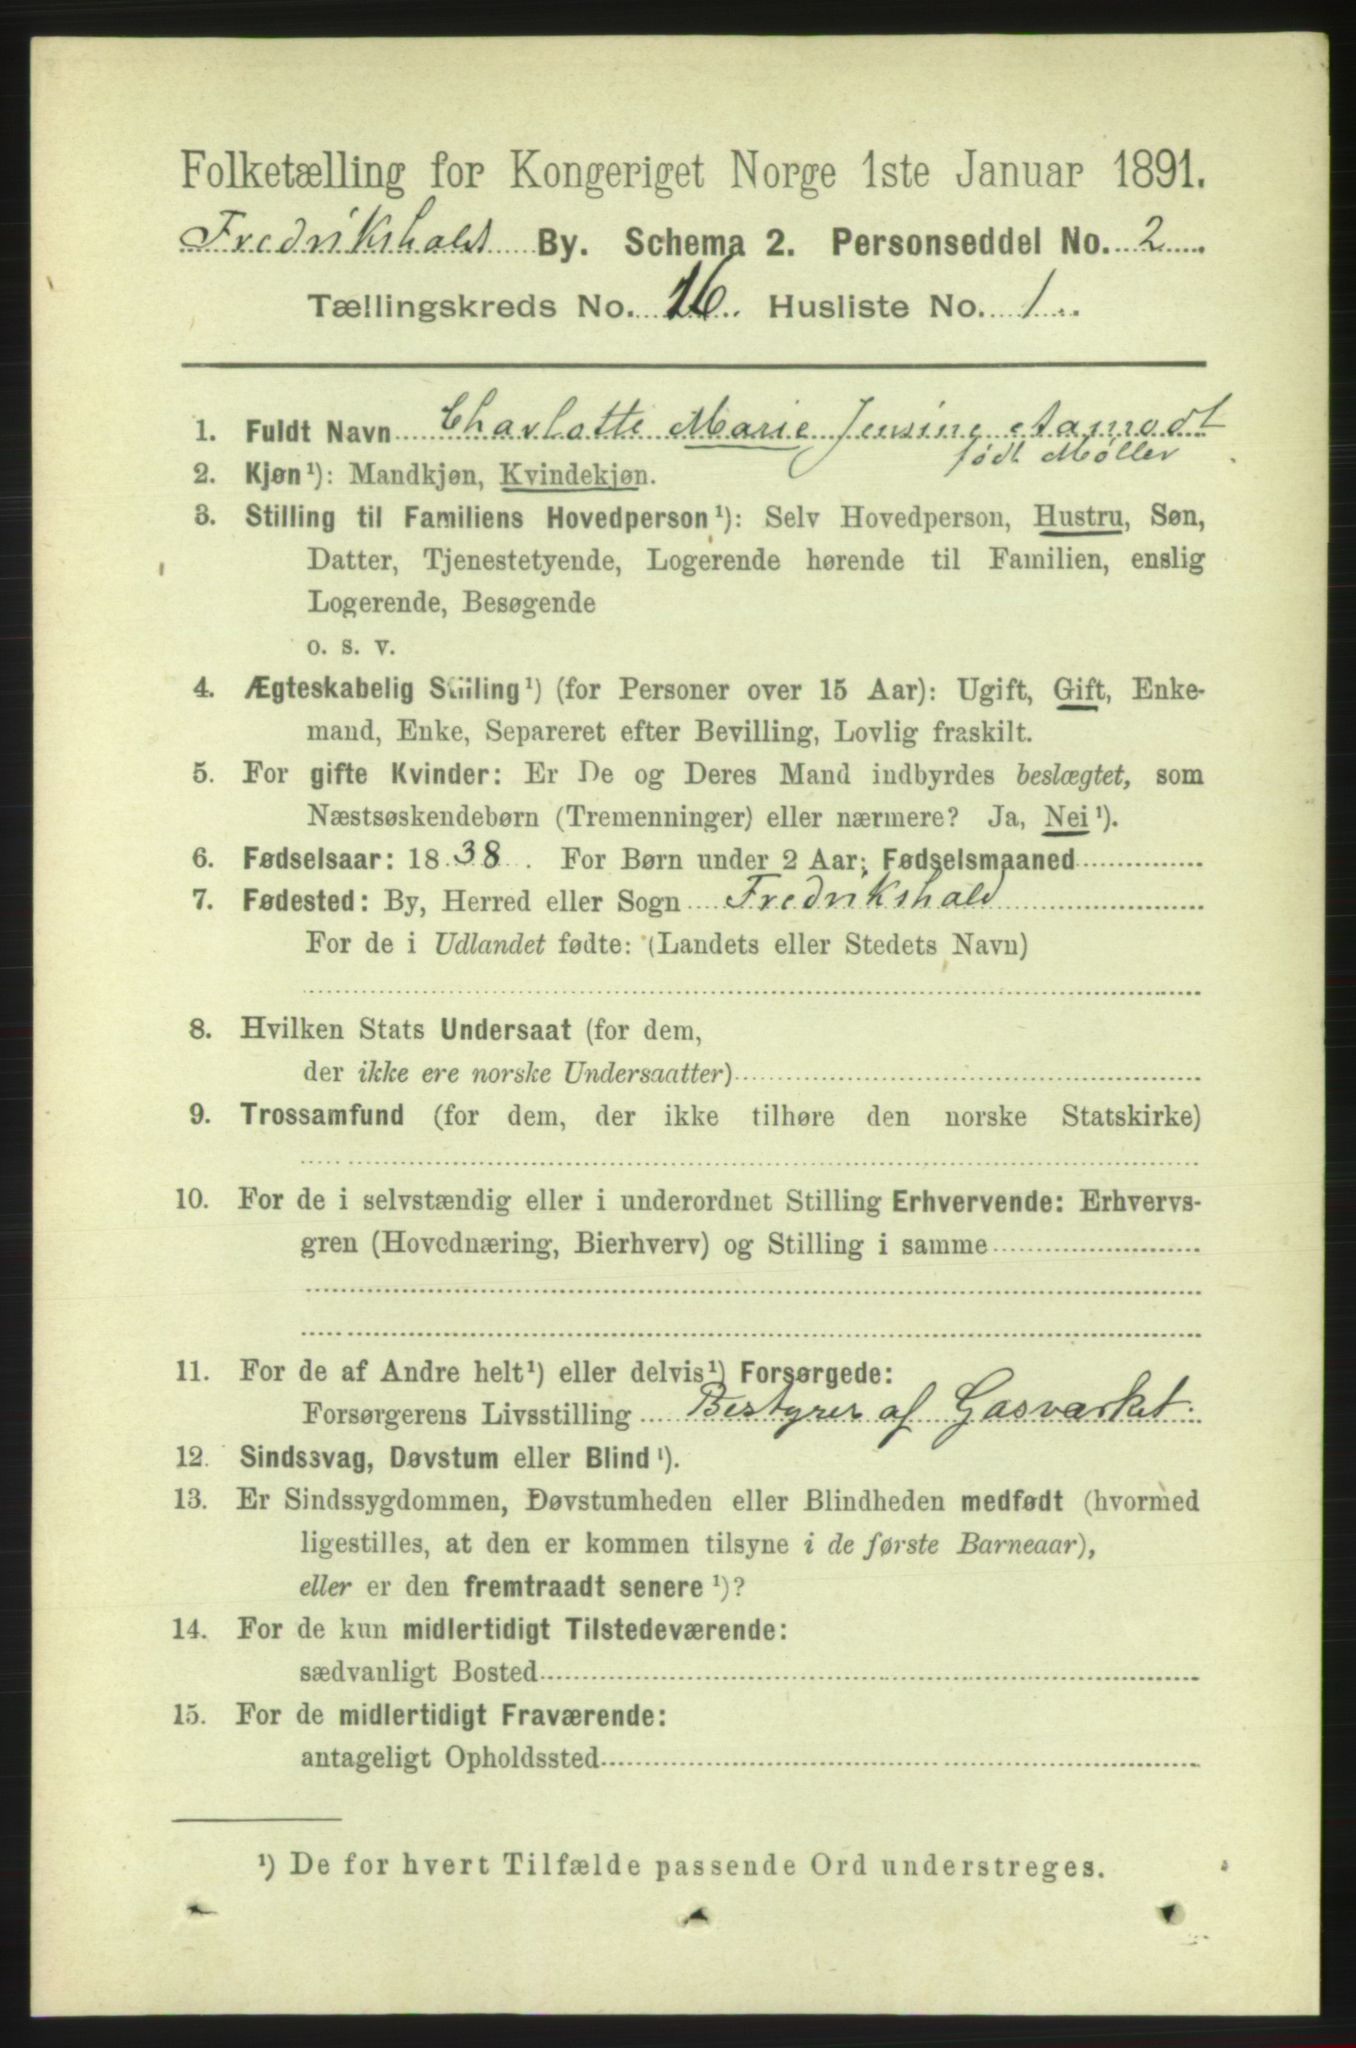 Folketælling for Kongeriget Norge 1ste Januar 1891.
Fredrikshald By. Schema 2. Personseddel No. 2
Tællingskreds No. 16. Husliste No. 1
1. Fuldt Navn Charlotte Marie Jensine Aamodt
født Møller
2. Kjøn¹): Mandkjøn, Kvindekjøn.
3. Stilling til Familiens Hovedperson¹): Selv Hovedperson, Hustru, Søn,
Datter, Tjenestetyende, Logerende hørende til Familien, enslig
Logerende, Besøgende
o. s. v.
4. Ægteskabelig Stilling¹) (for Personer over 15 Aar): Ugift, Gift, Enke-
mand, Enke, Separeret efter Bevilling, Lovlig fraskilt.
5. For gifte Kvinder: Er De og Deres Mand indbyrdes beslægtet, som
Næstsøskendebørn (Tremenninger) eller nærmere? Ja, Nei¹).
6. Fødselsaar: 1838. For Børn under 2 Aar: Fødselsmaaned
7. Fødested: By, Herred eller Sogn Fredrikshald
For de i Udlandet fødte: (Landets eller Stedets Navn)
8. Hvilken Stats Undersaat (for dem,
der ikke ere norske Undersaatter)
9. Trossamfund (for dem, der ikke tilhøre den norske Statskirke)
10. For de i selvstændig eller i underordnet Stilling Erhvervende: Erhvervs-
gren (Hovednæring, Bierhverv) og Stilling i samme
11. For de af Andre helt¹) eller delvis¹) Forsørgede:
Forsørgerens Livsstilling Bestyrer af Gasværket.
12. Sindssvag, Døvstum eller Blind¹).
13. Er Sindssygdommen, Døvstumheden eller Blindheden medfødt (hvormed
ligestilles, at den er kommen tilsyne i de første Barneaar),
eller er den fremtraadt senere¹)?
14. For de kun midlertidigt Tilstedeværende:
sædvanligt Bosted
15. For de midlertidigt Fraværende:
antageligt Opholdssted
¹) De for hvert Tilfælde passende Ord understreges.